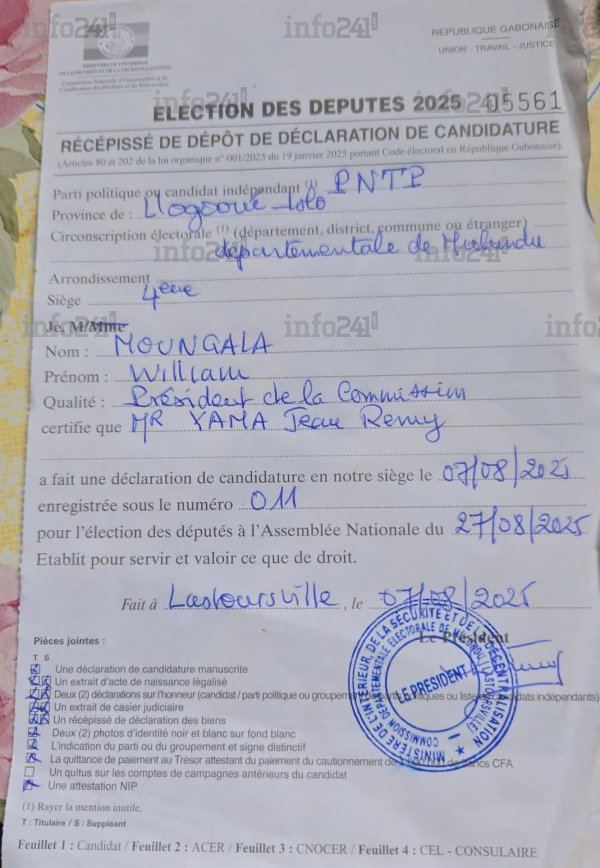 info241
REPUBLIQUE GABONAISE
UNION - TRAVAIL - JUSTICE
MINISTERE DE L'INTERIEUR,
DE LA SECURITE ET DE LA DECENTRALISATION
Commission Nationale d'Organisation et de
Coordination des Elections et du Référendum
ELECTION DES DEPUTES 2025 05561
RÉCÉPISSÉ DE DÉPÔT DE DÉCLARATION DE CANDIDATURE
(Articles 80 et 202 de la loi organique n° 001/2025 du 19 janvier 2025 portant Code électoral en République Gabonaise).
Parti politique ou candidat indépendant (1) PNTP
Province de : L'Ogooué-Lolo
Circonscription électorale (1) (département, district, commune ou étranger)
départementale de Mulundu
Arrondissement
Siège 4eme
Je, M/Mme
Nom : MOUNGALA
Prénom : William
Qualité : Président de la Commission
certifie que MR YAMA Jean Remy
a fait une déclaration de candidature en notre siège le 07/08/2025
enregistrée sous le numéro 011
pour l'élection des députés à l'Assemblée Nationale du 27/08/2025
Etablit pour servir et valoir ce que de droit.
Fait à Lastoursville, le 07/08/2025
Le Président
Pièces jointes :
T S
Une déclaration de candidature manuscrite
Un extrait d'acte de naissance légalisé
Deux (2) déclarations sur l'honneur (candidat / parti politique ou groupement de partis politiques ou listes de candidats indépendants)
Un extrait de casier judiciaire
Un récépissé de déclaration des biens
Deux (2) photos d'identité noir et blanc sur fond blanc
L'indication du parti ou du groupement et signe distinctif
La quittance de paiement au Trésor attestant du paiement du cautionnement de francs CFA
Un quitus sur les comptes de campagnes antérieurs du candidat
Une attestation NIP
MINISTERE DE L'INTERIEUR, DE LA SÉCURITÉ ET DE LA DÉCENTRALISATION
COMMISSION DEPARTEMENTALE ELECTORALE DE MULUNDU (LASTOURSVILLE)
LE PRESIDENT
(1) Rayer la mention inutile.
T : Titulaire / S : Suppléant
Feuillet 1 : Candidat / Feuillet 2 : ACER / Feuillet 3 : CNOCER / Feuillet 4 : CEL - CONSULAIRE